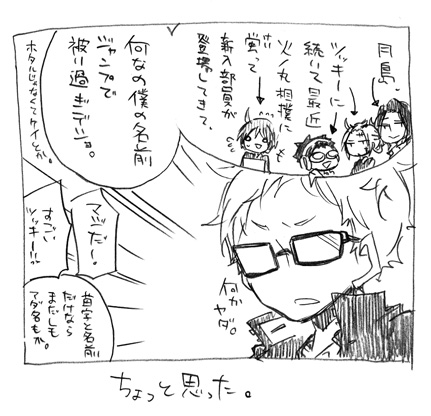 月島、
ツッキーに
続いて最近
火ノ丸相撲に
蛍って
新入部員が
登場してきて、
何なの僕の名前
ジャンプで
被り過ぎデショ。
ホタルじゃなくてケイとか。
何か
ヤダ。
マジだー!
すごい
ツッキー!!
苗字と名前
だけなら
まだしも
アダ名もか。
ちょっと思った。